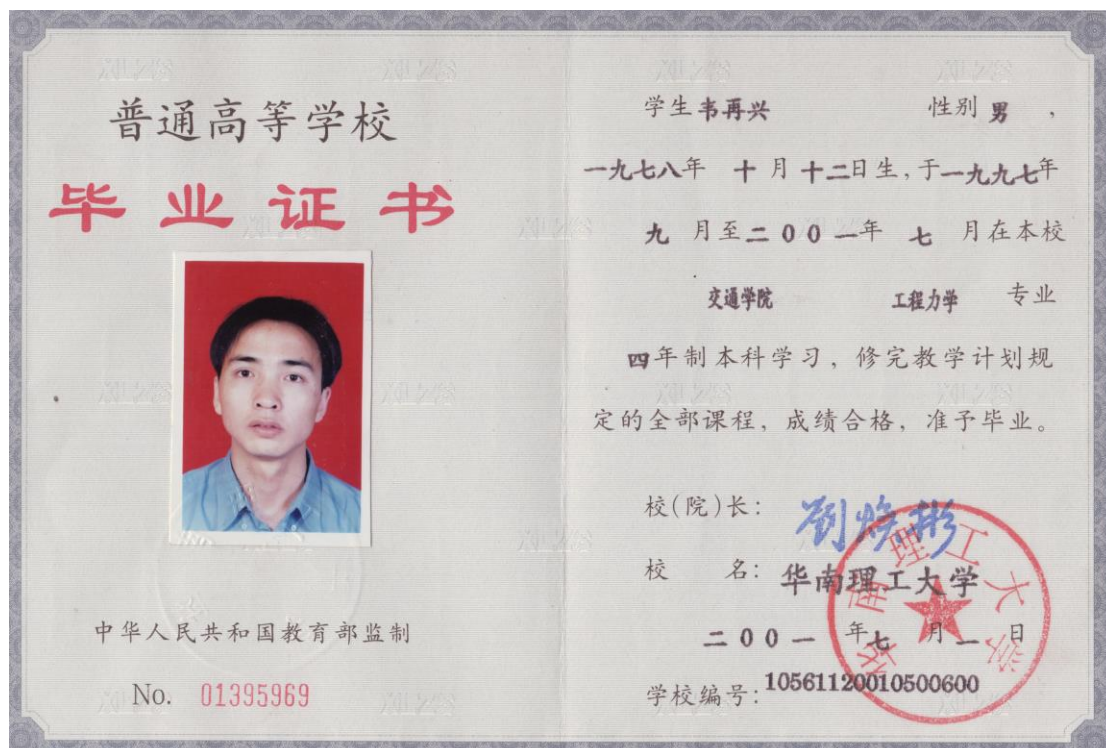 普通高等学校
毕业证书
中华人民共和国教育部监制
No. 01395969
学生韦再兴 性别男,
一九七八年 十月十二日生,于一九九七年
九月至二00一年 七月在本校
交通学院 工程力学 专业
四年制本科学习,修完教学计划规
定的全部课程,成绩合格,准予毕业。
校(院)长: 刘焕彬
校 名: 华南理工大学
二00一 年七月一日
学校编号: 10561120010500600
华南理工大学